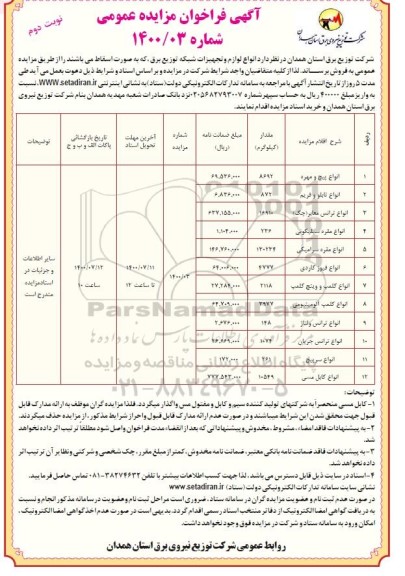 نوبت دوم
آگهی فراخوان مزایده عمومی
شماره ۱۴۰۰/۰۳
شرکت توزیع نیروی برق استان همدان
شرکت توزیع برق استان همدان در نظر دارد انواع لوازم و تجهیزات شبکه توزیع برق، که به صورت اسقاط می باشند را از طریق مزایده
عمومی به فروش برساند. لذا از کلیه متقاضیان واجد شرایط شرکت در مزایده و بر اساس اسناد و شرایط ذیل دعوت بعمل می آید طی
مدت ۵ روز از تاریخ انتشار آگهی با مراجعه به سامانه تدارکات الکترونیکی دولت (ستاد) به نشانی اینترنتی WWW.setadiran.ir نسبت
به واریز مبلغ ۴۰۰۰۰۰ ریال به حساب سپهر شماره ۰۲۰۵۶۸۲۷۹۳۰۰۷ نزد بانک صادرات شعبه مهدیه همدان بنام شرکت توزیع نیروی
برق استان همدان و خرید اسناد مزایده اقدام نمایند.
ردیف شرح اقلام مزایده مقدار (کیلوگرم) مبلغ ضمانت نامه (ریال) شماره مزایده آخرین مهلت تحویل اسناد تاریخ بازگشائی پاکات الف و ب و ج توضیحات
۱ انواع پیچ و مهره ۸۶۹۲ ۶۹,۵۳۶,۰۰۰
۲ انواع تابلو و فریم ۸۷۲ ۶,۸۳۶,۰۰۰
۳ انواع ترانس معابر (چک) ۱۶۹۱۰ ۶۳۷,۱۵۵,۰۰۰
۴ انواع مقره سیلیکونی ۲۳۶ ۱,۱۰۴,۰۰۰
۵ انواع مقره سرامیکی ۱۴۰۲۳۴ ۱۴۶,۷۶۰,۰۰۰
۶ انواع فیوز کاردی ۴۷۷۷ ۶۴,۰۰۷,۰۰۰
۷ انواع کلمپ و وینچ کلمپ ۲۱۱۸ ۲۷,۲۸۴,۰۰۰
۸ انواع کلمپ آلومینیومی
۹ انواع ترانس ولتاژ ۱۴۸ ۲,۶۷۶,۰۰۰
۱۰ انواع ترانس جریان ۱۰۷۴
۱۱ انواع سرپیچ ۲۶۱
۱۲ انواع کابل مسی ۱۰۵۴۹ ۷۷۷,۵۴۲,۰۰۰
۱۴۰۰/۰۳
۱۴۰۰/۰۷/۱۱
تا ساعت ۱۴
۱۴۰۰/۰۷/۱۲
ساعت ۱۰
سایر اطلاعات
و جزئیات در
اسناد مزایده
مندرج است
ParsNamadData
پایگاه اطلاع رسانی مناقصه و مزایده
۰۲۱-۸۸۳۴۹۶۷۰-۵
توضیحات:
۱- کابل مسی منحصراً به شرکتهای تولید کننده سیم و کابل و مفتول مس واگذار میگردد. فلذا مزایده گران موظف به ارائه مدارک قابل
قبول جهت محقق شدن این شرایط میباشند و در صورت عدم ارائه مدارک قابل قبول و احراز شرایط مذکور، از مزایده حذف میگردند.
۲- به پیشنهادات فاقد امضاء، مشروط، مخدوش و پیشنهاداتی که بعد از انقضاء مدت فراخوان واصل شود مطلقاً ترتیب اثر داده نخواهد
شد.
۳- به پیشنهادات فاقد ضمانت نامه بانکی معتبر، ضمانت نامه مخدوش، کمتر از مبلغ مقرر، چک شخصی و شرکتی و نظایر آن ترتیب اثر
داده نخواهد شد.
۴- اسناد در سایت ذیل قابل دسترس می باشد، لذا جهت کسب اطلاعات بیشتر با تلفن ۰۸۱-۳۸۲۷۴۶۳۲ تماس حاصل فرمایید.
نشانی سایت سامانه تدارکات الکترونیکی دولت (ستاد) www.setadiran.ir
در صورت عدم ثبت نام و عضویت مزایده گران در سامانه ستاد، ضروری است مراحل ثبت نام و عضویت در سامانه مذکور انجام و نسبت
به دریافت گواهی امضا الکترونیک از دفاتر منتخب اسناد رسمی اقدام گردد. بدیهی است در صورت عدم اخذ گواهی امضا الکترونیکی،
امکان ورود به سامانه ستاد و شرکت در مزایده فوق وجود نخواهد داشت.
روابط عمومی شرکت توزیع نیروی برق استان همدان